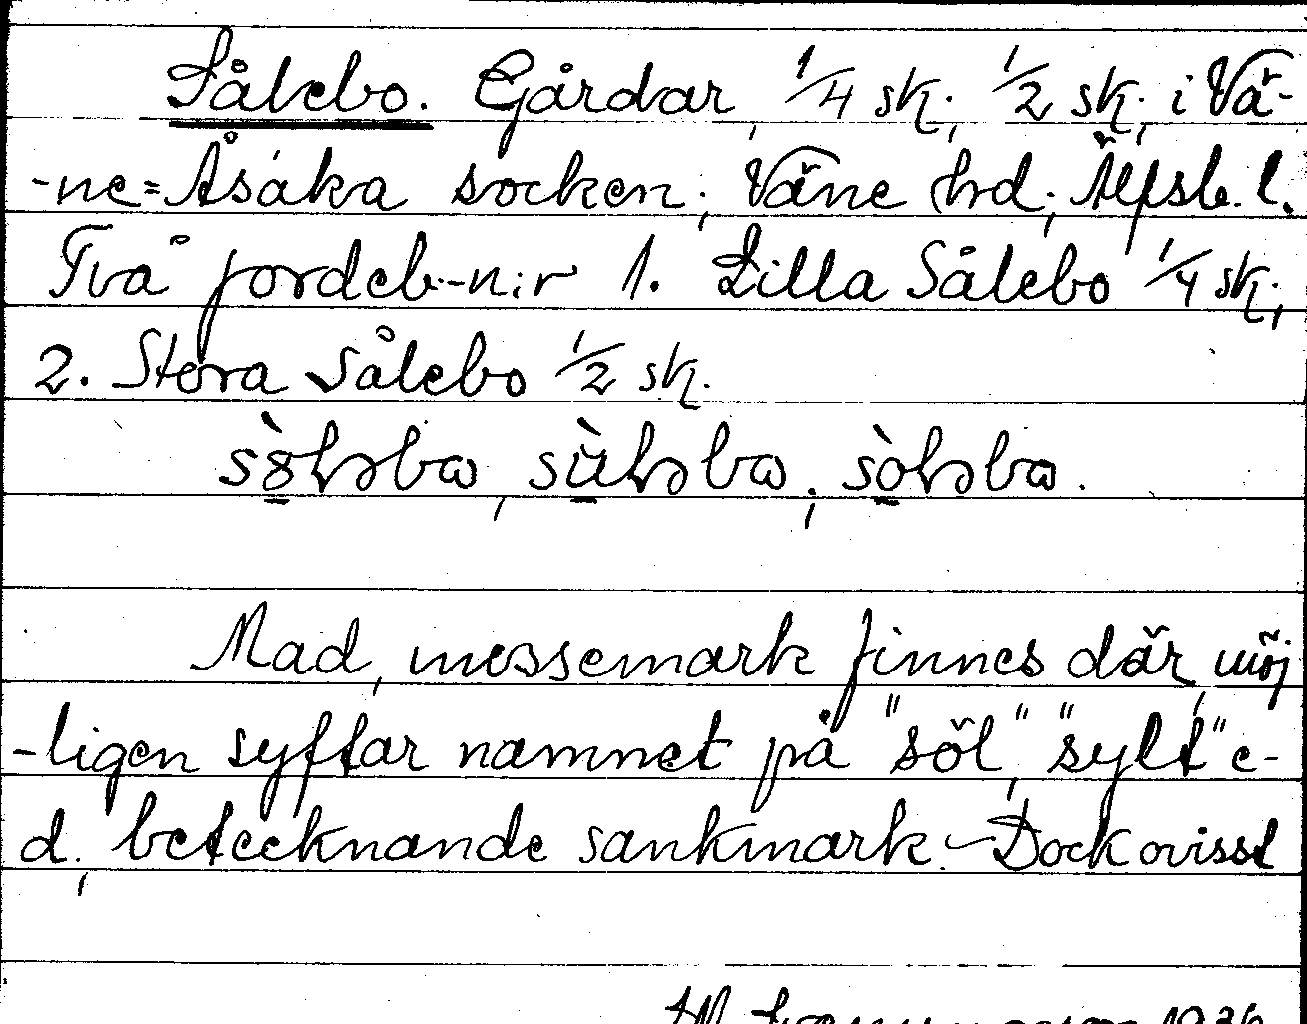 Sålebo. Gårdar, 1/4 sk.; 1/2 sk.; i Vä-
-ne=Åsaka socken; Väne hrd; Älfsb. l.
Två jordeb.-n:r 1. Lilla Sålebo 1/4 sk.;
2. Stora Sålebo 1/2 sk.
Mad, mossemark finnes där, möj
-ligen syftar namnet på "söl", "sylt" e-
d., betecknande sankmark. - Dock ovisst
1926